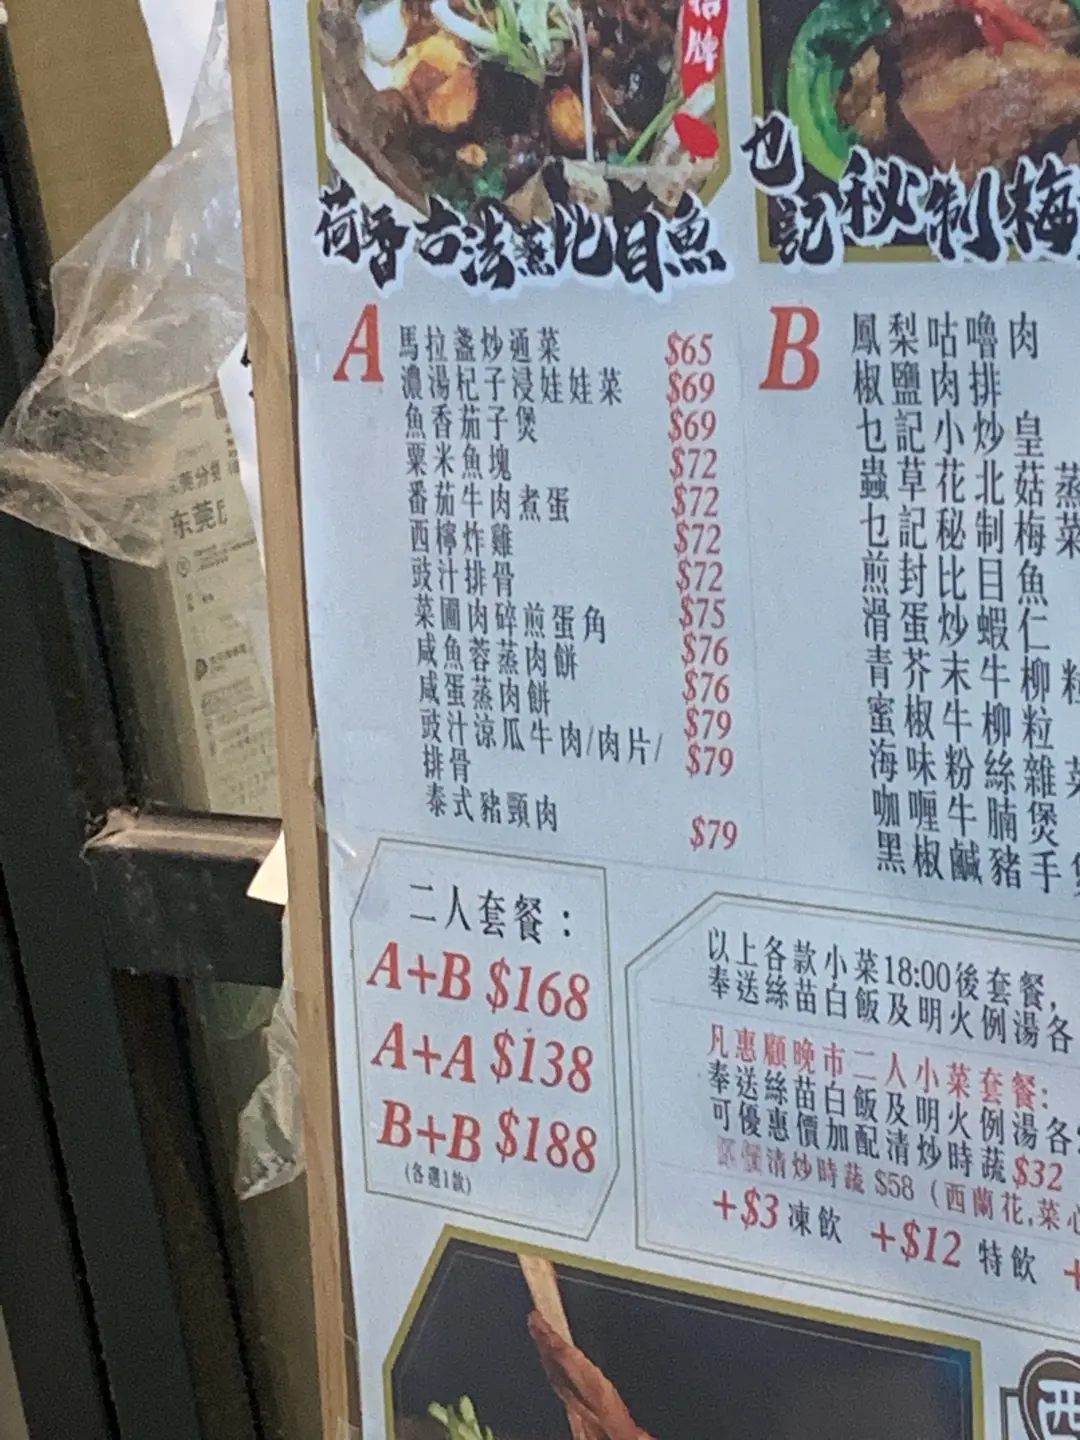 招牌
荷香古法蒸比目魚
乜記秘制梅
A
馬拉盞炒通菜 $65
濃湯杞子浸娃娃菜 $69
魚香茄子煲 $69
粟米魚塊 $72
番茄牛肉煮蛋 $72
西檸炸雞 $72
豉汁排骨 $72
菜圃肉碎煎蛋角 $75
咸魚蓉蒸肉餅 $76
咸蛋蒸肉餅 $76
豉汁涼瓜牛肉/肉片/ $79
排骨 $79
泰式豬頸肉 $79
B
鳳梨咕嚕肉
椒鹽肉排
乜記小炒皇
蟲草花北菇蒸
乜記秘制梅菜
煎封比目魚
滑蛋炒蝦仁
青芥末牛柳粒
蜜椒牛柳粒
海味粉絲雜菜
咖喱牛腩煲
黑椒鹹豬手煲
二人套餐：
A+B $168
A+A $138
B+B $188
(各選1款)
以上各款小菜18:00後套餐，
奉送絲苗白飯及明火例湯各
凡惠顧晚市二人小菜套餐:
奉送絲苗白飯及明火例湯各
可優惠價加配清炒時蔬$32
清炒時蔬 $58 (西蘭花,菜心
+$3 凍飲 +$12 特飲 +
西
东莞